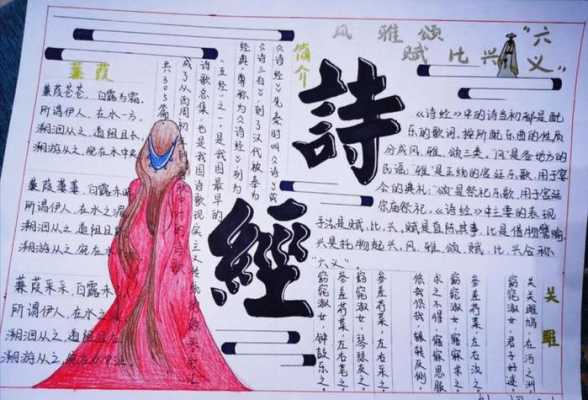 蒹葭
蒹葭苍苍,白露为霜。
所谓伊人,在水一方。
溯洄从之,道阻且长。
溯游从之,宛在水中央
蒹葭萋萋,白露
所谓伊人,在水之湄
溯洄从之,道阻且
溯游从之,宛在水
蒹葭采采,白露未
所谓伊人,在水
溯洄从之,道阻
溯游从之,宛在
简介
《诗经》先秦时叫《诗》或
《诗三百》,到了汉代被奉为
经典,尊称为《诗经》,列为
"五经"之一,是我国最早的
诗歌总集,也是我国诗歌现实主义
成了从西周初
共305篇
詩經
风雅颂
赋比兴
"六义"
《诗经》中的诗当初都是配
乐的歌词,按所配乐曲的性质
分成风、雅、颂三类。"风"是各地方的
民谣,"雅"是正统的宫廷乐歌,用于宴
会的典礼,"颂"是祭祀乐歌,用于宫廷
宗庙祭祀。《诗经》中主要的表现
手法是赋、比、兴。赋是直陈其事,比是借物譬喻
兴是托物起兴,风、雅、颂、赋、比、兴合称
"六义"。
关雎
关关雎鸠,在河之洲。
窈窕淑女,君子好逑。
参差荇菜,左右流之。
窈窕淑女,寤寐求之。
求之不得,寤寐思服
悠哉悠哉,辗转反侧。
参差荇菜,左右采之。
窈窕淑女,琴瑟友之。
参差荇菜,左右芼之。
窈窕淑女,钟鼓乐之。